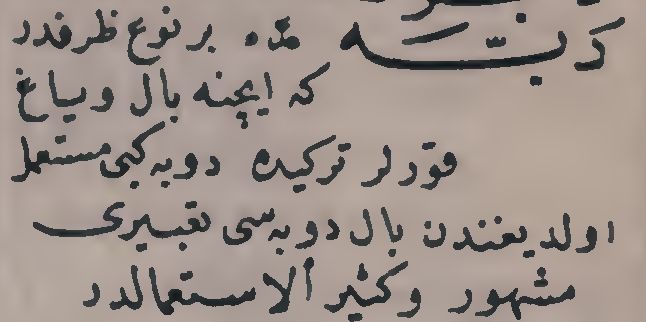 دبّه مدّه بر نوع ظرفدر
كه ايچنه بال وياغ
قورلر تركيده دوبه كبى مستعمل
اولديغندن بال دوبه سى تعبيرى
مشهور وكثير الاستعمالدر